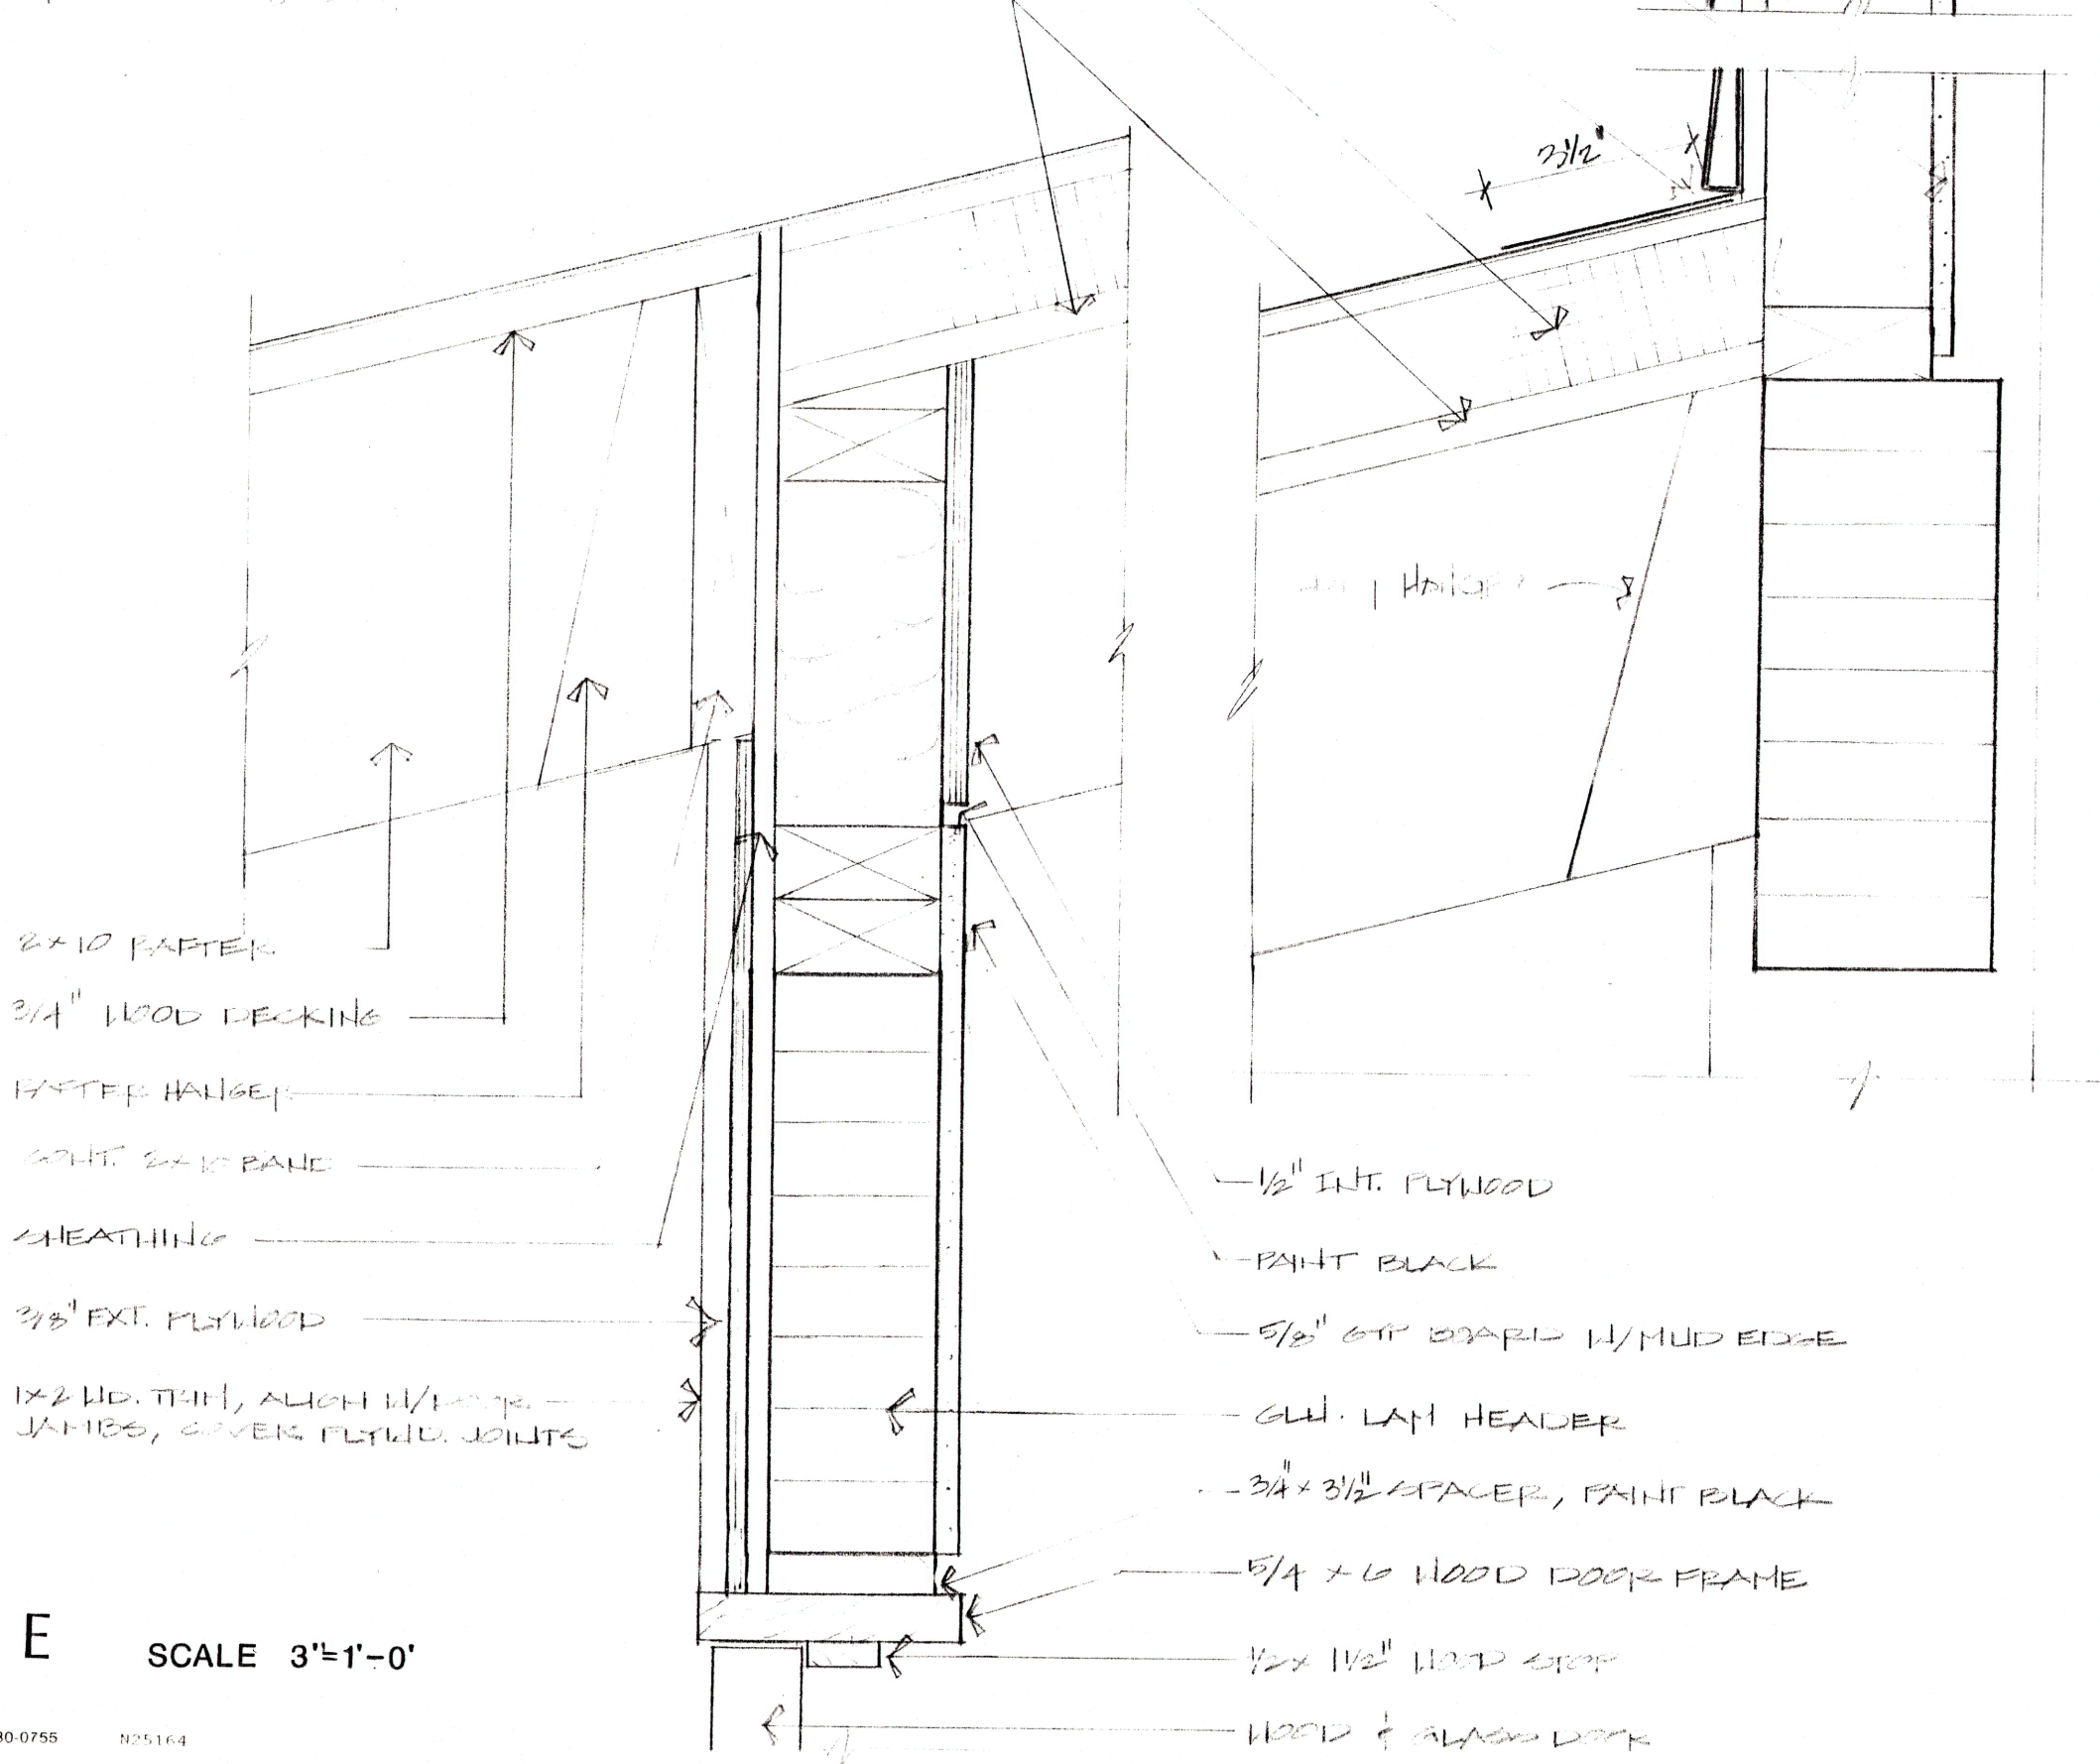 3½"
HANGER
2×10 RAFTER
3/4" WOOD DECKING
RAFTER HANGER
CONT. 2×10 BAND
SHEATHING
3/8" EXT. PLYWOOD
1×2 WD. TRIM, ALIGN W/DOOR
JAMBS, COVER PLYWD. JOINTS
1/2" INT. PLYWOOD
PAINT BLACK
5/8" GYP BOARD W/MUD EDGE
GLU. LAM HEADER
3/4"× 3½" SPACER, PAINT BLACK
5/4 × 6 WOOD DOOR FRAME
1/2 × 1½" WOOD STOP
WOOD & GLASS DOOR
E SCALE 3"=1'-0'
30-0755 N25164